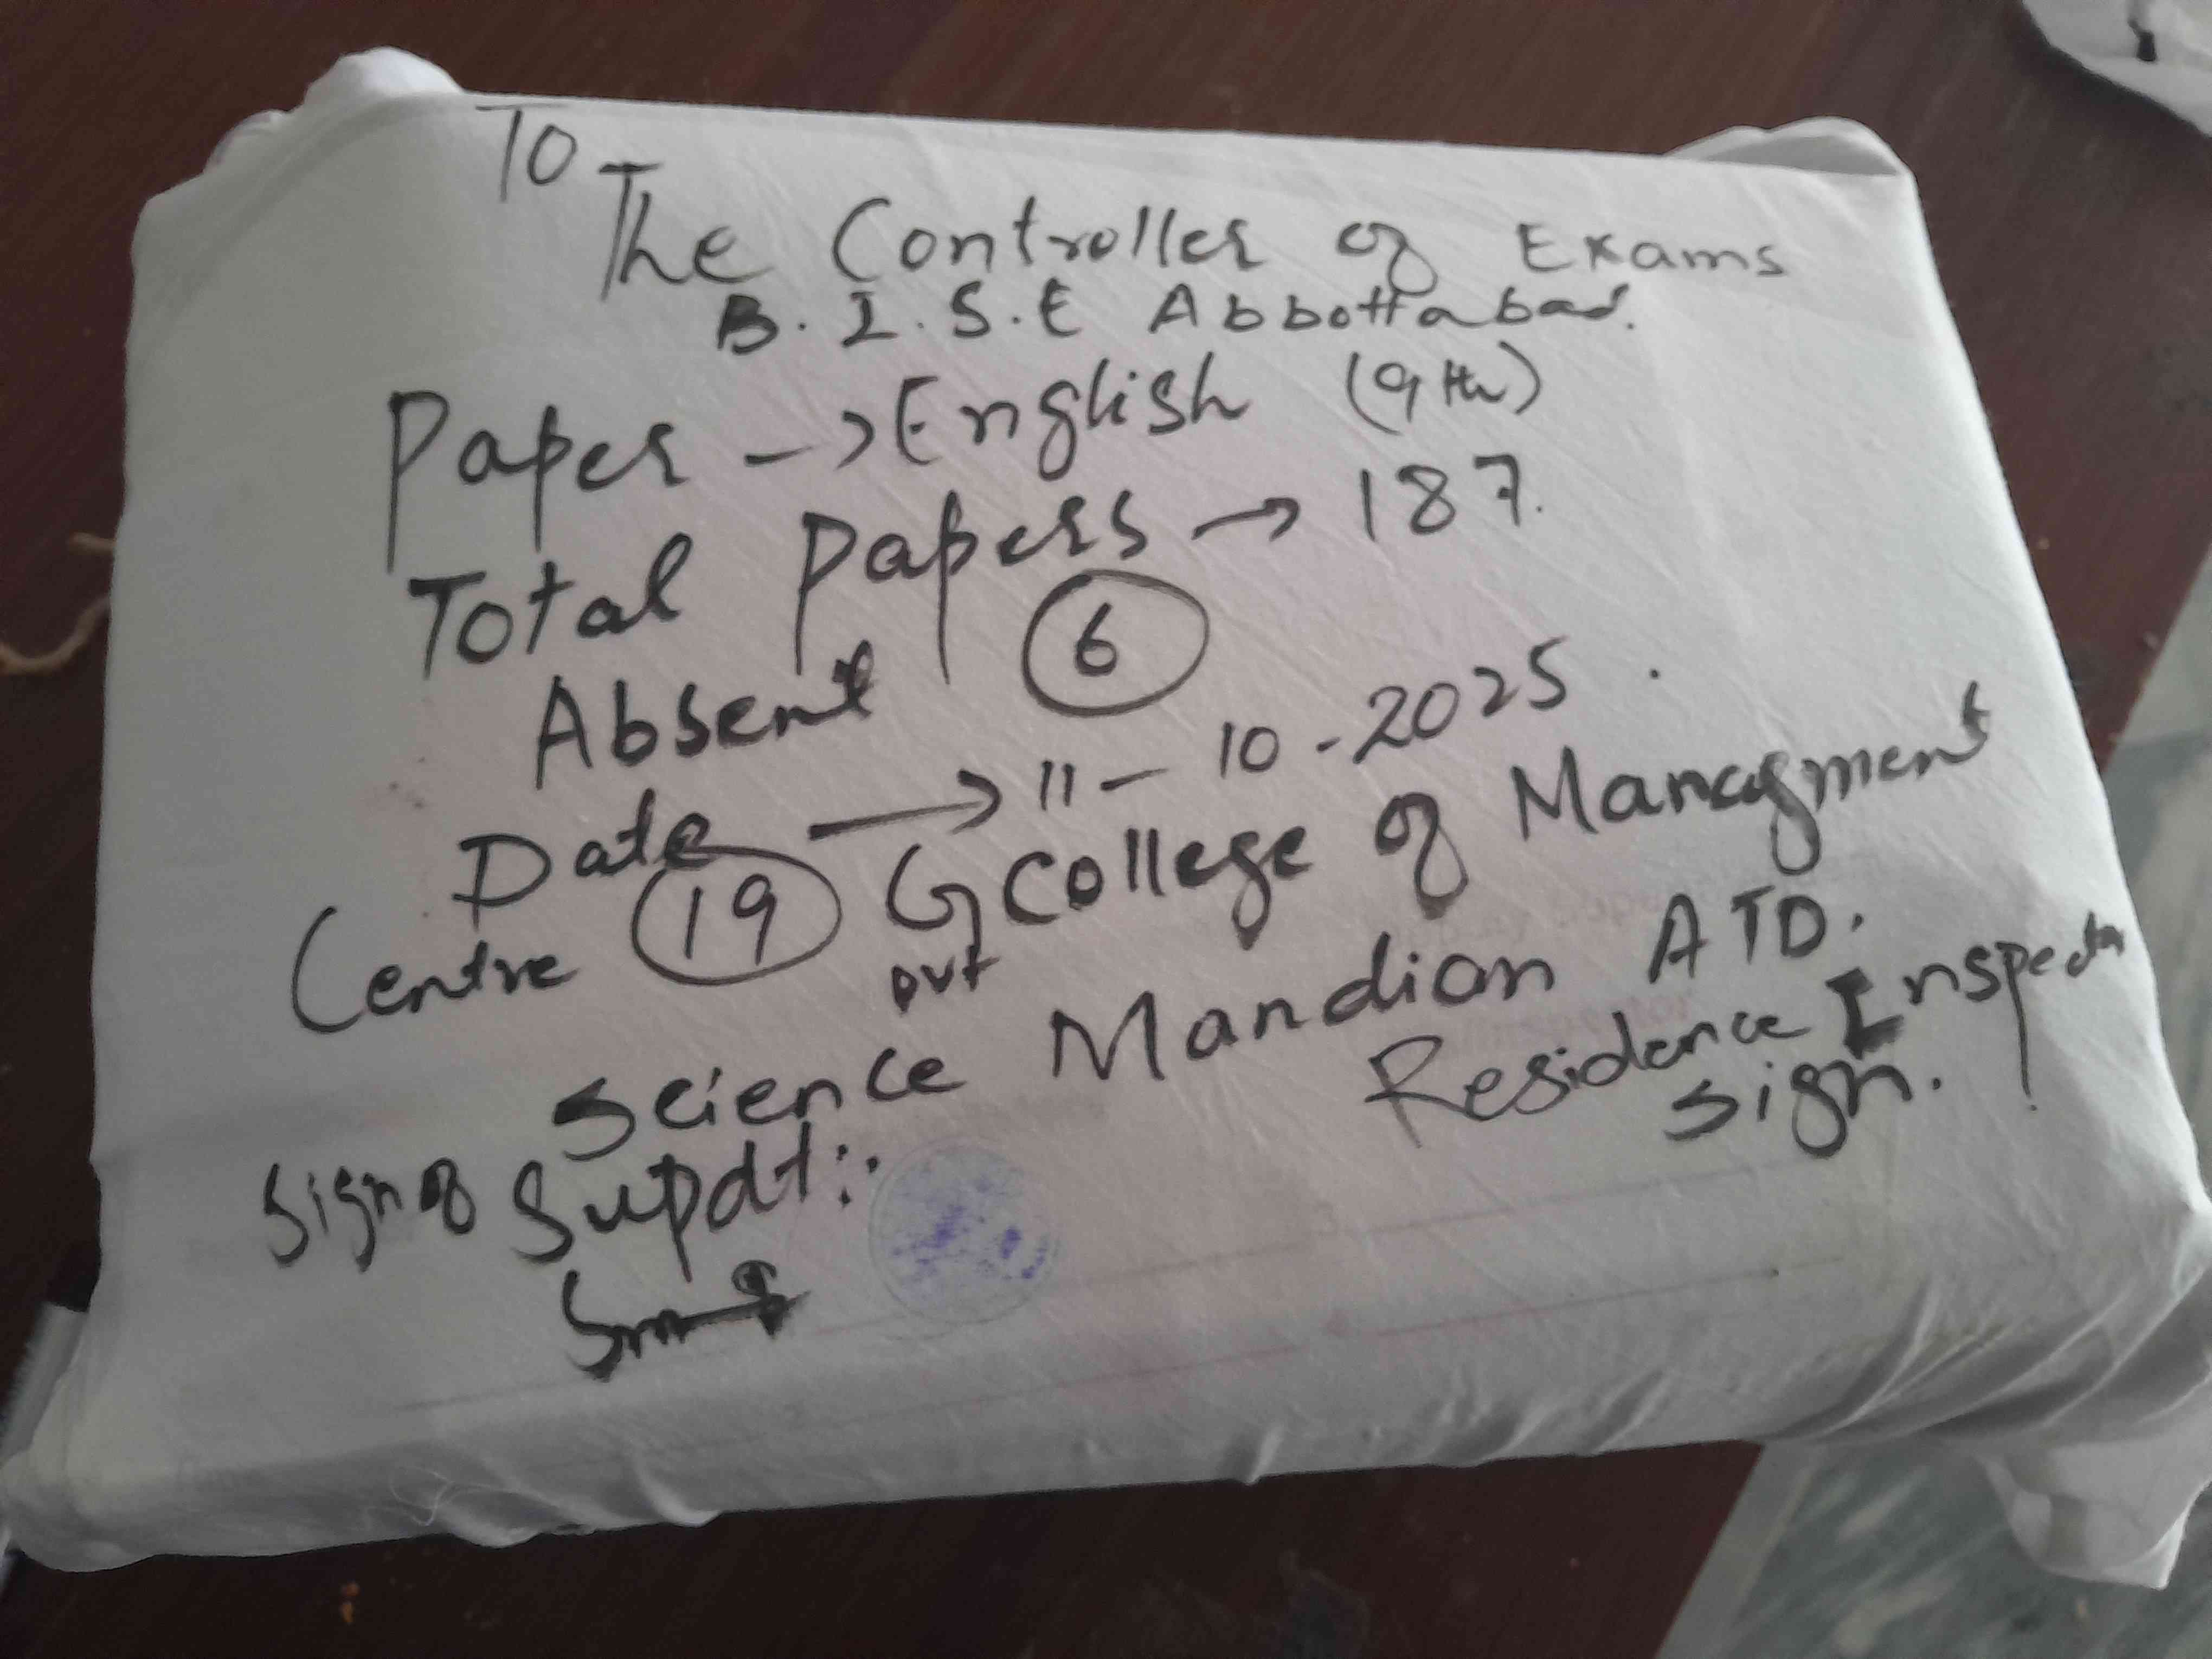 To
The Controller of Exams
B.I.S.E Abbottabad.
Paper → English (9th)
Total Papers → 187.
Absent 6
Date → 11-10-2025.
Centre 19 Govt College of Managment
Science Mandian ATD.
Residence Inspector
Sign.
Sign of Supdt:.